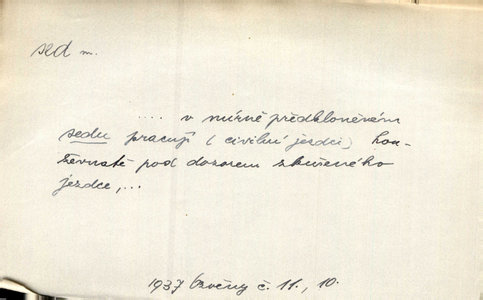 sed m.
.... v mírně předkloněném
sedu pracují (civilní jezdci) hou-
ževnatě pod dozorem zkušeného
jezdce,...
1937 Ozvěny č. 11., 10.